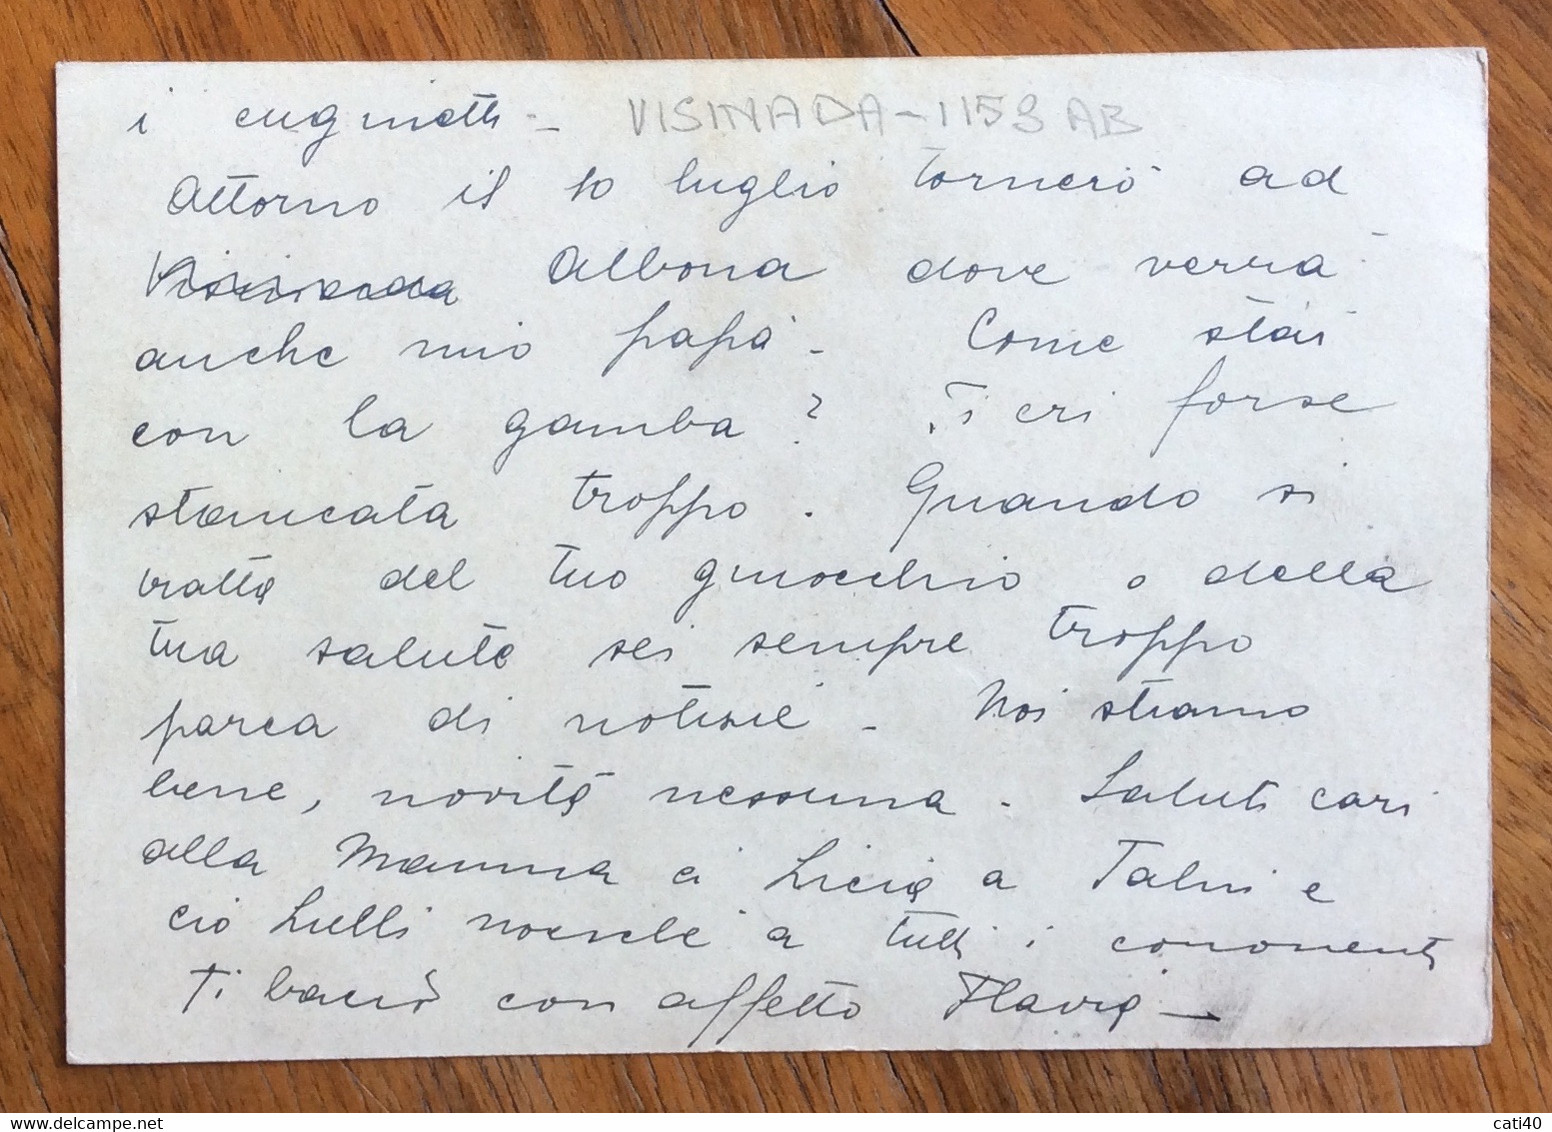 i cuginetti - VISINADA - 1153 AB
Attorno il 10 luglio tornerò ad
Visinada Albona dove verrà
anche mio papà - Come stai
con la gamba? Ti eri forse
stancata troppo. Quando si
tratta del tuo ginocchio o della
tua salute sei sempre troppo
parca di notizie - Noi stiamo
bene, novità nessuna - Saluti cari
alla Mamma a Licia a Talui e
Lulli nonché a tutti i cononenti
Ti bacio con affetto Flavia -
cati40